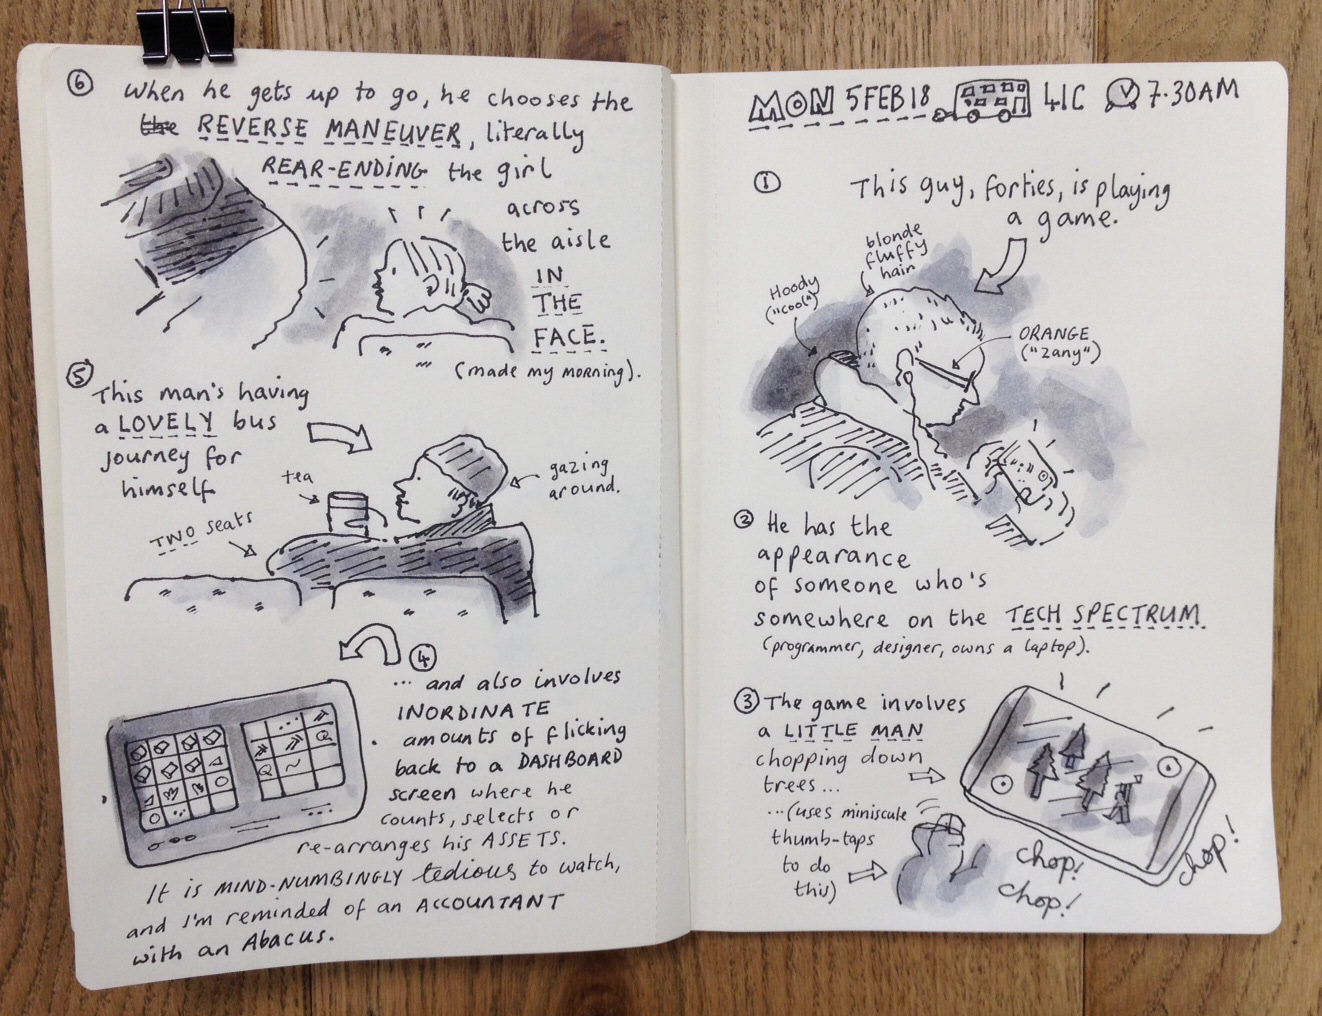 MON 5FEB18 41C 7.30AM
①
This guy, forties, is playing
a game.
blonde
fluffy
hair
Hoody
("cool")
ORANGE
("zany")
② He has the
appearance
of someone who's
somewhere on the TECH SPECTRUM.
(programmer, designer, owns a laptop).
③ The game involves
a LITTLE MAN
chopping down
trees...
...(uses miniscule
thumb-taps
to do
this)
chop!
chop!
chop!
④
... and also involves
INORDINATE
amounts of flicking
back to a DASHBOARD
screen where he
counts, selects or
re-arranges his ASSETS.
It is MIND-NUMBINGLY tedious to watch,
and I'm reminded of an ACCOUNTANT
with an Abacus.
⑤
This man's having
a LOVELY bus
journey for
himself
tea
gazing
around.
TWO seats
⑥ When he gets up to go, he chooses the
the REVERSE MANEUVER, literally
REAR-ENDING the girl
across
the aisle
IN
THE
FACE.
(made my MORNING).